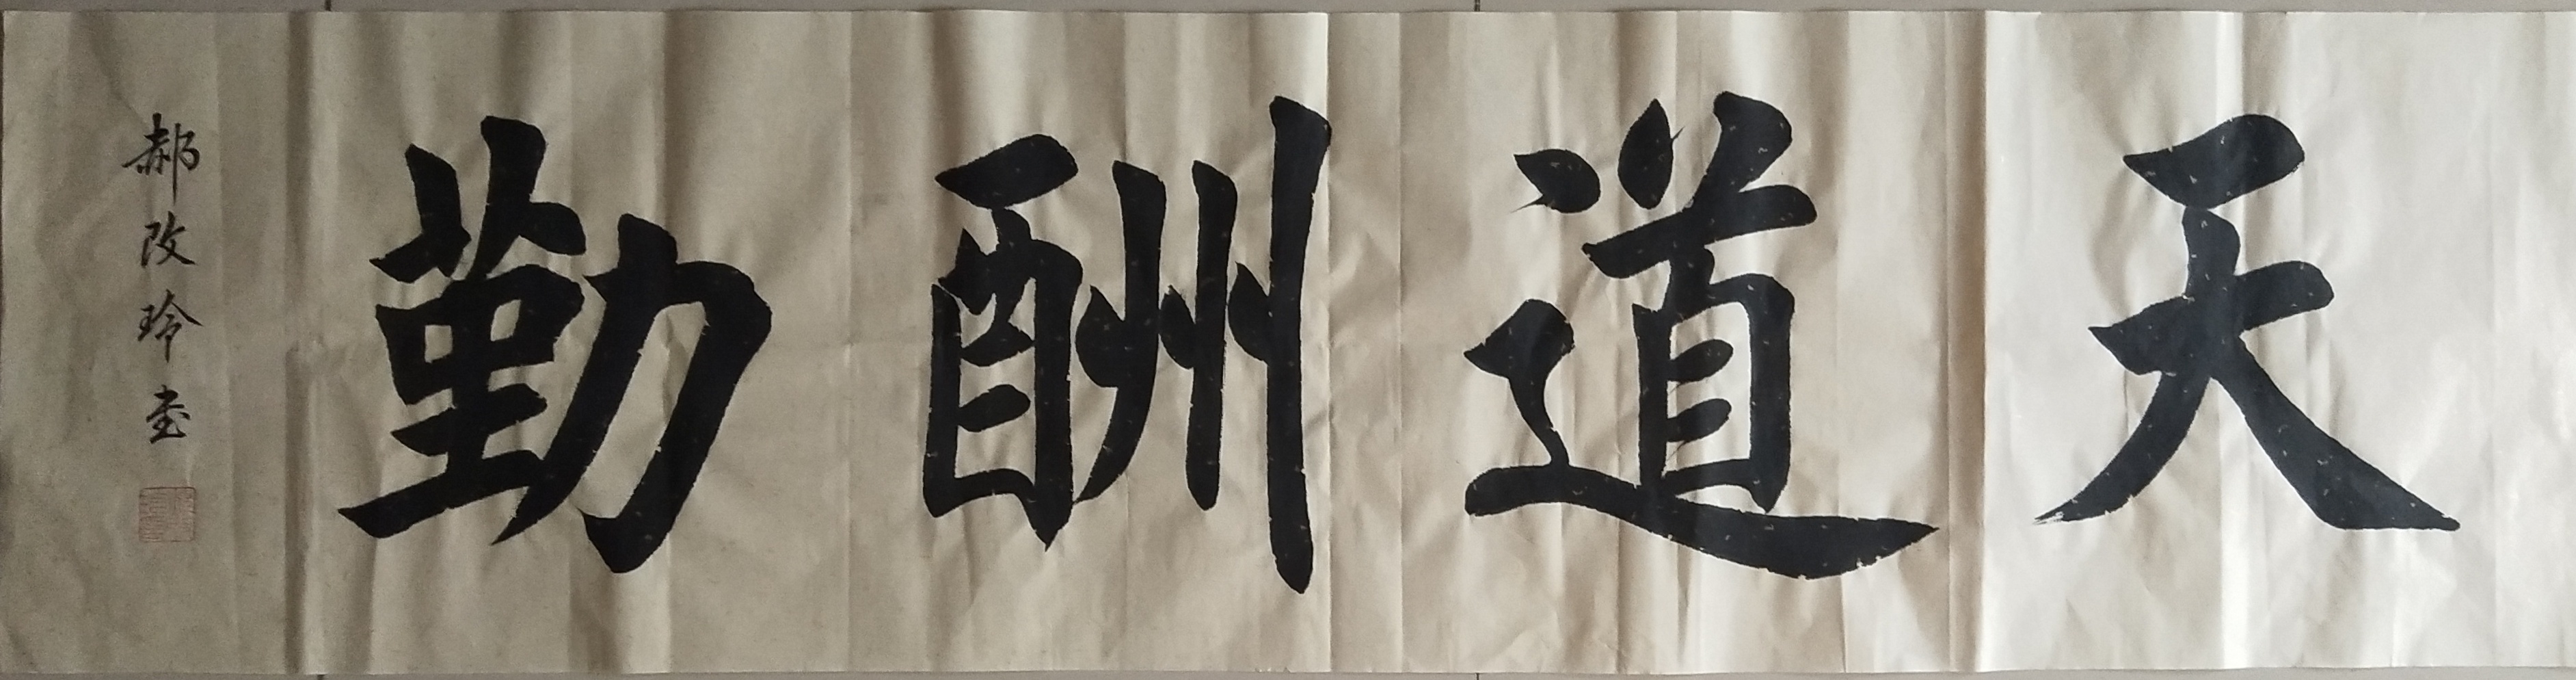 天道酬勤
郝改玲书